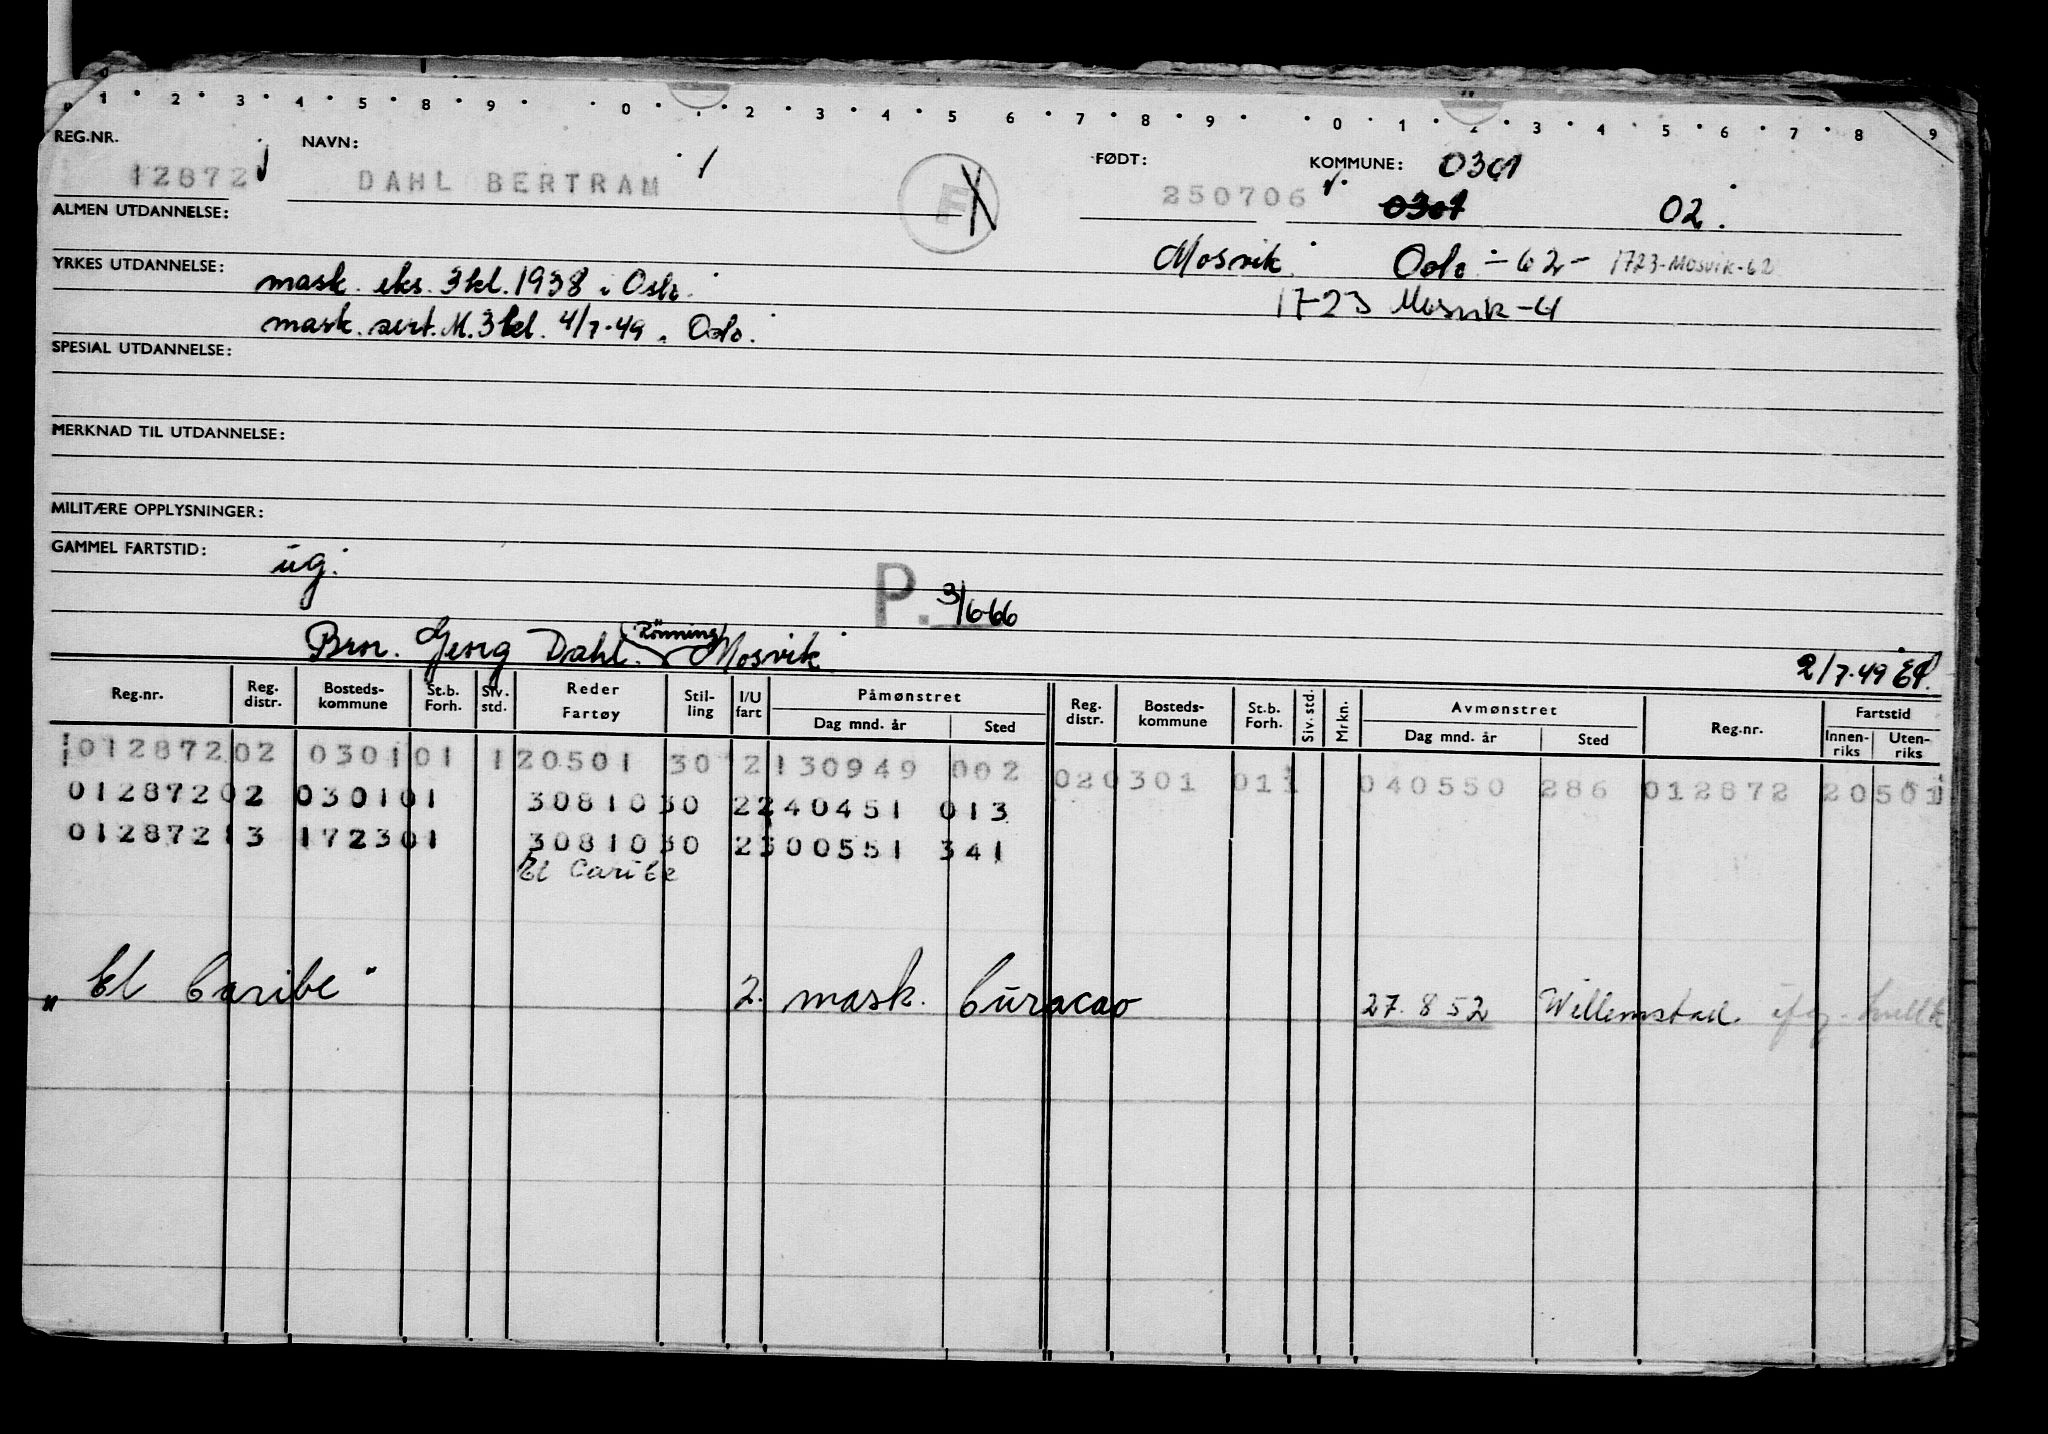 1 2 3 4 5 8 9 0 2 3 4 5 6 7 8 9 0 1 2 3 4 5 6 7 8 9
REG.NR. NAVN: FØDT: KOMMUNE: 0301
12872 DAHL BERTRAM 250706 0301 02.
ALMEN UTDANNELSE:
Mosvik Oslo - 62 - 1723-Mosvik-62
YRKES UTDANNELSE: mask. eks. 3 kl. 1938 i Oslo.
1723 Mosvik - 4
mask. sert. M. 3 kl. 4/7-49. Oslo.
SPESIAL UTDANNELSE:
MERKNAD TIL UTDANNELSE:
MILITÆRE OPPLYSNINGER:
GAMMEL FARTSTID: ug.
P. 3/6-66
Bror. Georg Dahl. (Rönning) Mosvik
2/7-49
Reg.nr. Reg. distr. Bosteds- kommune St.b. Forh. Siv. std. Reder Fartøy Stil- ling I/U fart Påmønstret Dag mnd. år Sted Reg. distr. Bosteds- kommune St.b. Forh. Siv. std. Mrkn. Avmønstret Dag mnd. år Sted Reg.nr. Fartstid Innen- riks Uten- riks
012872 02 0301 01 1 20501 30 2 130949 002 02 0301 01 1 040550 286 012872 20501
012872 02 0301 01 30810 30 2 240451 013
012872 13 1723 01 30810 30 2 300551 341
El Caribe
"El Caribe" 2. mask. Curacao 27.8 52 Willemstad